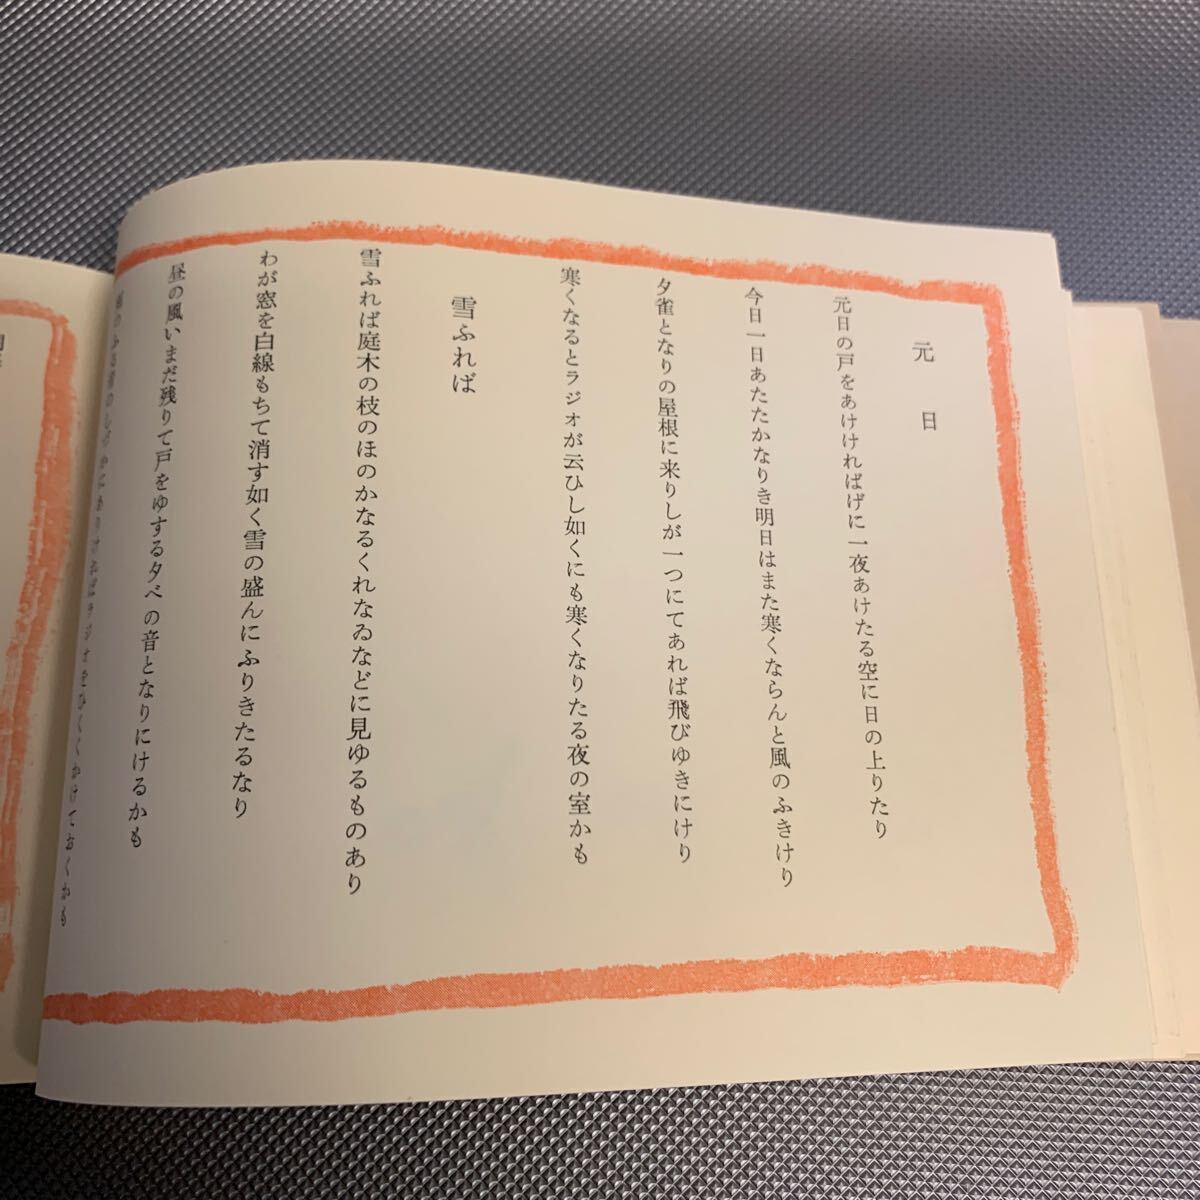 元日
元日の戸をあけければげに一夜あけたる空に日の上りたり
今日一日あたたかなりき明日はまた寒くならんと風のふきけり
夕雀となりの屋根に来りしが一つにてあれば飛びゆきにけり
寒くなるとラジオが云ひし如くにも寒くなりたる夜の室かも
雪ふれば
雪ふれば庭木の枝のほのかなるくれなゐなどに見ゆるものあり
わが窓を白線もちて消す如く雪の盛んにふりきたるなり
昼の風いまだ残りて戸をゆする夕べの音となりにけるかも
のふる宵のしづかにありければラジオをひくくかけておくかも